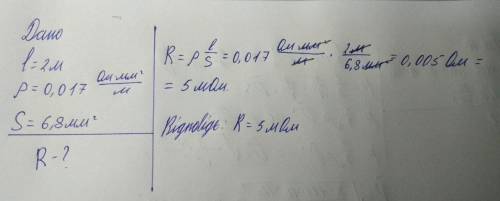 Дано
l = 2м
ρ = 0,017 Ом мм²/м
S = 6,8 мм²
R - ?
R = ρ l/S = 0,017 Ом мм²/м · 2м/6,8 мм² = 0,005 Ом =
= 5 мОм
Відповідь: R = 5 мОм